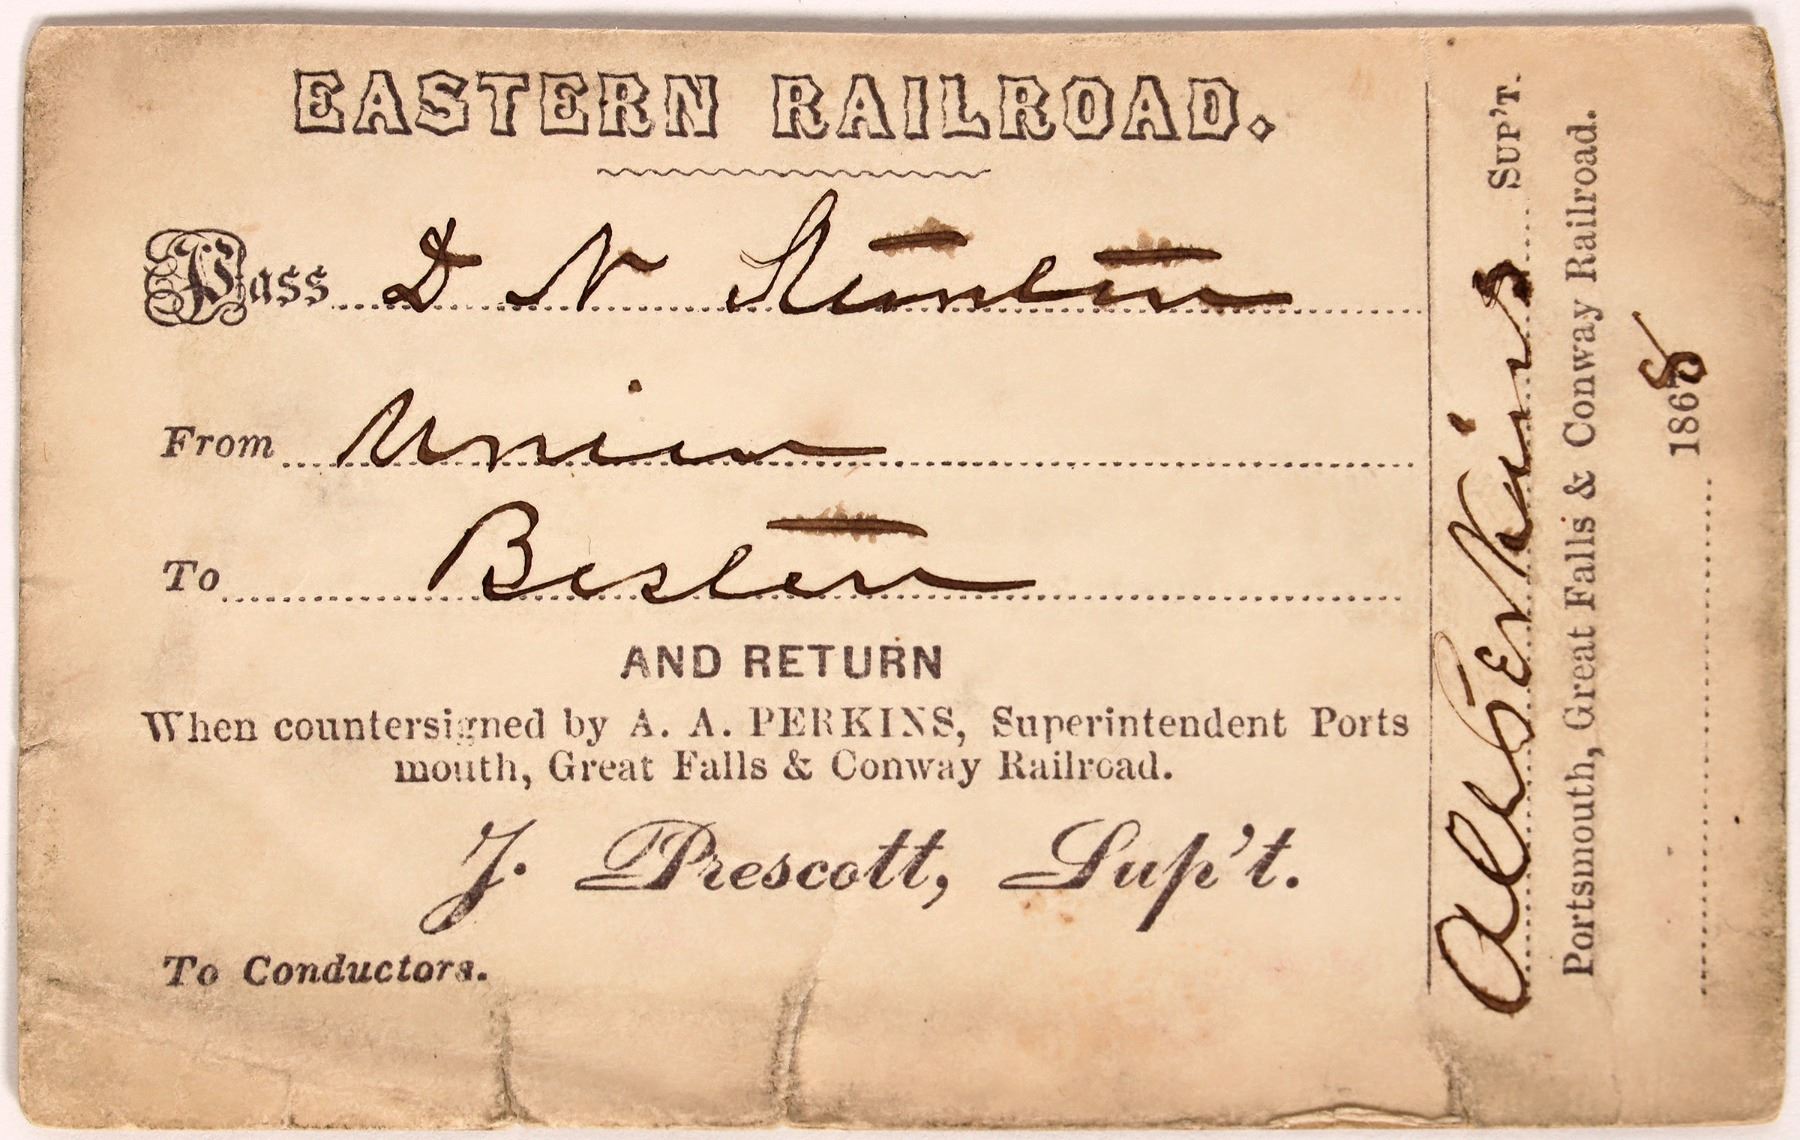 EASTERN RAILROAD.
Pass D N Stanton
From Union
To Boston
AND RETURN
When countersigned by A. A. PERKINS, Superintendent Ports
mouth, Great Falls & Conway Railroad.
J. Prescott, Sup't.
To Conductors.
A A Perkins SUP'T.
Portsmouth, Great Falls & Conway Railroad.
1868